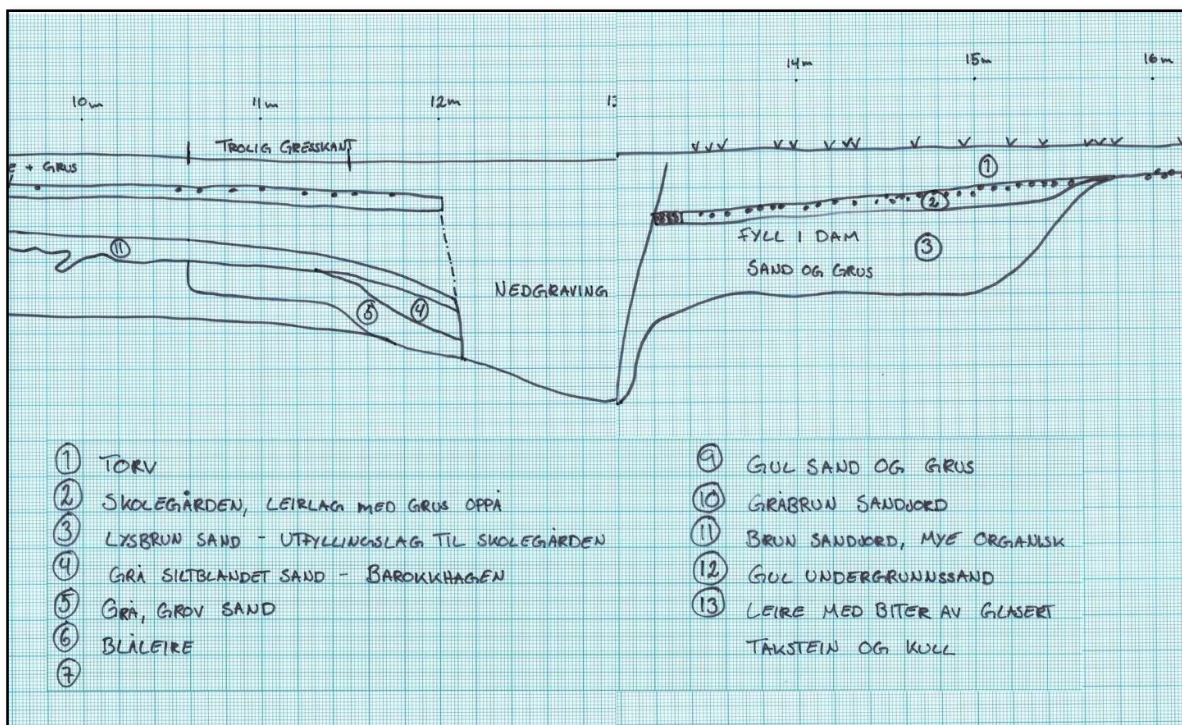 10m
11m
12m
13
14m
15m
16m
TROLIG GRESSKANT
E + GRUS
①
②
FYLL I DAM
③
SAND OG GRUS
⑪
NEDGRAVING
⑤
④
① TORV
② SKOLEGÅRDEN, LEIRLAG MED GRUS OPPÅ
③ LYSBRUN SAND - UTFYLLINGSLAG TIL SKOLEGÅRDEN
④ GRÅ SILTBLANDET SAND - BAROKKHAGEN
⑤ GRÅ, GROV SAND
⑥ BLÅLEIRE
⑦
⑨ GUL SAND OG GRUS
⑩ GRÅBRUN SANDJORD
⑪ BRUN SANDJORD, MYE ORGANISK
⑫ GUL UNDERGRUNNSSAND
⑬ LEIRE MED BITER AV GLASERT
TAKSTEIN OG KULL